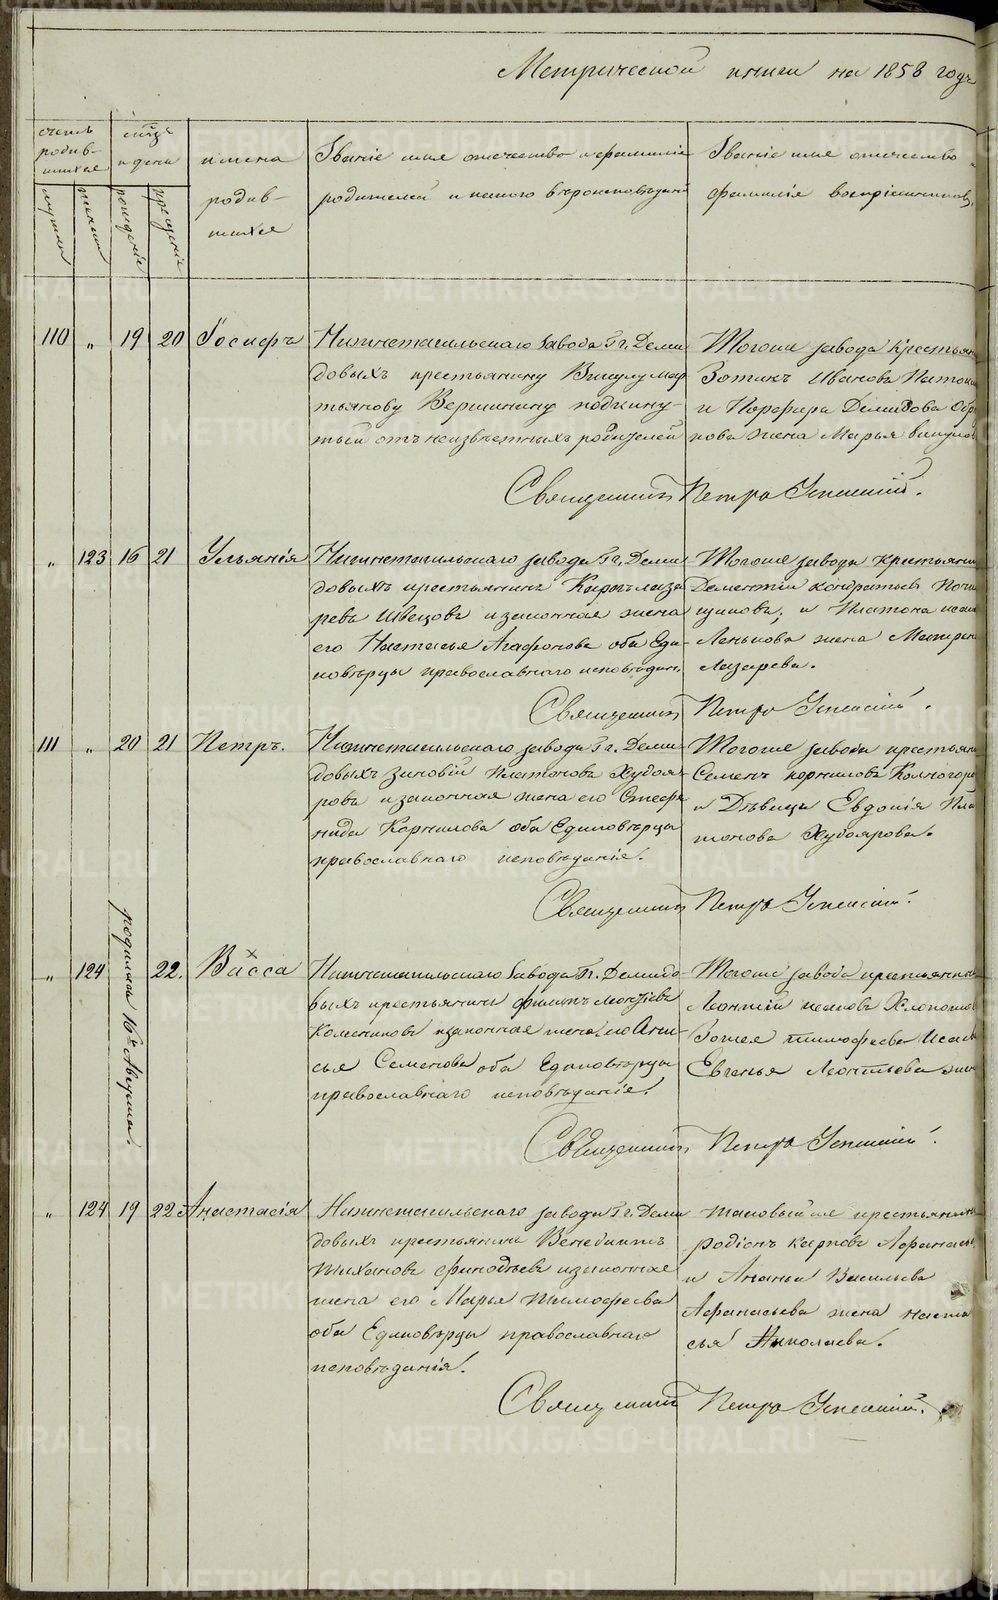 Метрической книги на 1858 годъ
счетъ родив-шихся
мужск
женск
мѣсяцъ и день
рожденіе
крещеніе
имена родив-шихся
Званіе имя отечество и фамилія
родителей и какого вѣроисповѣданія
Званіе имя отечество и
фамилія воспріемниковъ.
110 " 19 20 Іосифъ
Нижнетагильскаго завода Гг. Деми
довыхъ крестьянину Викулу Мар
тьянову Вершинину подкину-
тый отъ неизвѣстныхъ родителей
Тогоже завода крестьян
Зотикъ Ивановъ
и Порфира Демидова
нова жена Марья
Священникъ Петръ Успенскій.
" 123 16 21 Ульянія
Нижнетагильскаго завода Гг. Деми
довыхъ крестьянинъ Карпъ Лаза
ревъ Швецовъ и законная жена
его Настасья Агафонова оба Еди
новѣрцы православнаго исповѣдан.
Тогоже завода крестьянин
Дементій Кондратьевъ
щиковъ, и Платона
Ленькова жена Матрена
Лазарева.
Священникъ Петръ Успенскій.
111 " 20 21 Петръ.
Нижнетагильскаго завода Гг. Деми
довыхъ Зиновій Платоновъ Худоя
ровъ и законная жена его Стефа
нида Корнилова оба Единовѣрцы
православнаго исповѣданія.
Тогоже завода крестьян
Семенъ Корниловъ
и Дѣвица Евдокія Пла
тонова Худоярова.
Священникъ Петръ Успенскій.
" 124 родилась 16го Августа. 22. Васса
Нижнетагильскаго завода Гг. Демидо
выхъ крестьянинъ Филипъ Леонтіевъ
Колесниковъ и законная жена его Ани-
сья Семенова оба Единовѣрцы
православнаго исповѣданія.
Тогоже завода крестьянинъ
Леонтій
Зотея Тимофеева
Евгенья Леонтьева
Священникъ Петръ Успенскій.
" 124 19 22 Анастасія
Нижнетагильскаго завода Гг. Деми
довыхъ крестьянинъ Венедиктъ
Тихановъ и законная
жена его Марья Тимофеева
оба Единовѣрцы православнаго
исповѣданія.
таковыйже крестьянинъ
Родіонъ Карповъ Афанасье
и Ананьи Васильева
Афанасьева жена Наста
сья Николаева.
Священникъ Петръ Успенскій.
METRIKI.GASO-URAL.RU